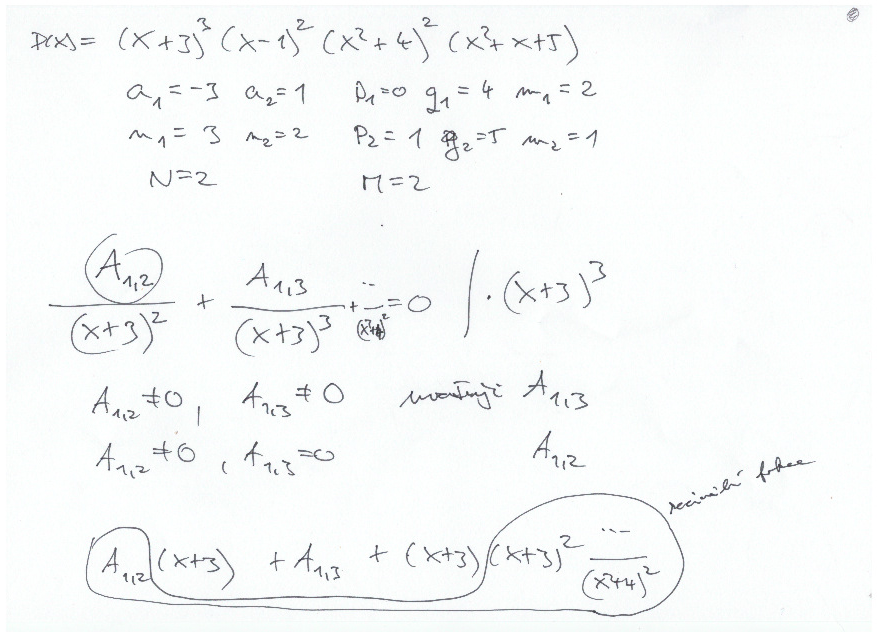 D(x) = (x+3)³ (x-1)² (x²+4)² (x²+x+5)
a₁ = -3 a₂ = 1 p₁ = 0 q₁ = 4 m₁ = 2
n₁ = 3 n₂ = 2 P₂ = 1 q₂ = 5 m₂ = 1
N = 2 M = 2
A₁,₂/(x+3)² + A₁,₃/(x+3)³ + .../(x²+4)² = 0 / · (x+3)³
A₁,₂ ≠ 0, A₁,₃ ≠ 0 uvažuji A₁,₃
A₁,₂ ≠ 0, A₁,₃ = 0 A₁,₂
racionální fukce
A₁,₂ (x+3) + A₁,₃ + (x+3) (x+3)² .../(x²+4)²